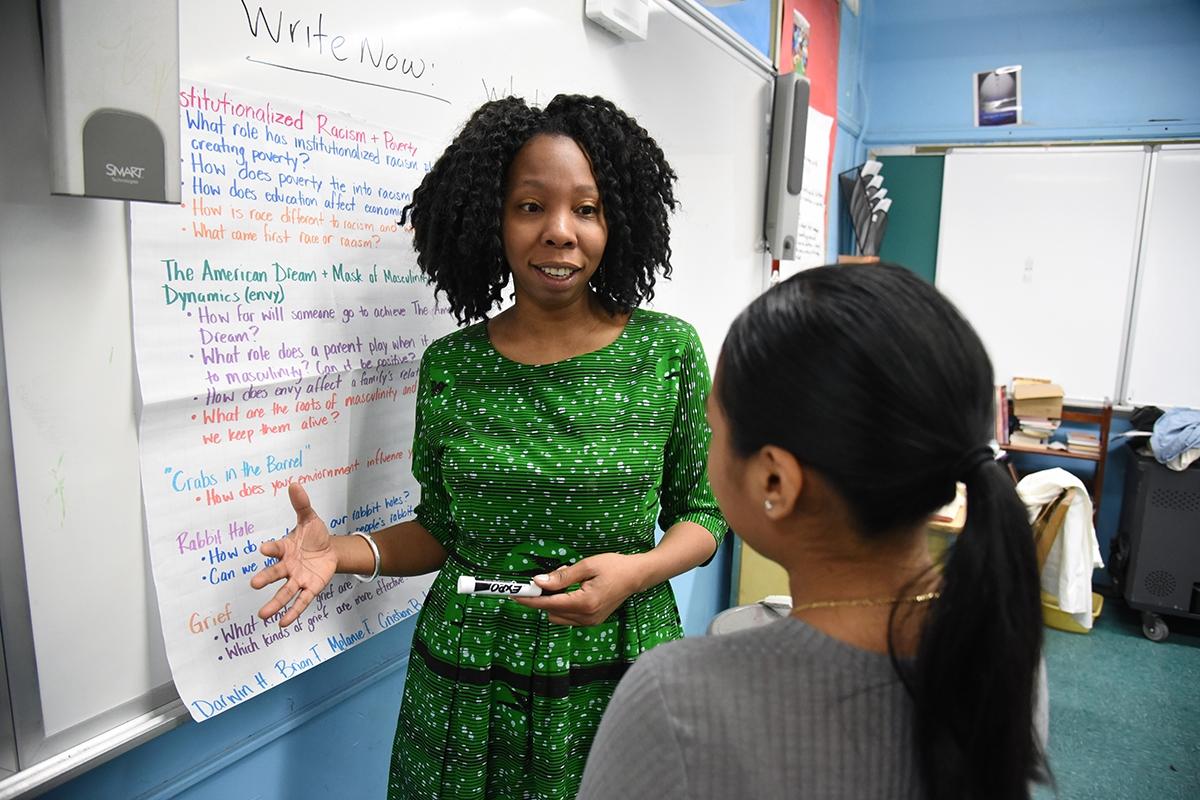 Write Now:
SMART
Technologies
stitutionalized Racism + Poverty
• What role has institutionalized racism
creating poverty?
• How does poverty tie into racism
• How does education affect economi
• How is race different to racism and
• What came first race or racism?
The American Dream + Mask of Masculinity
Dynamics (envy)
• How far will someone go to achieve The Am
Dream?
• What role does a parent play when it
to masculinity? Can it be positive?
• How does envy affect a family's relat
• What are the roots of masculinity and
we keep them alive?
"Crabs in the Barrel"
• How does your enviornment influence y
Rabbit Hole
• How do our rabbit holes?
• Can we people's rabbit
Grief
• What kinds grief are
• Which kinds of grief are more effective
Darwin H. Brian T. Melanie T. Cristian
EXPO